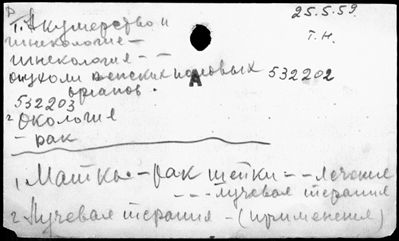 25.5.59.
Т. Акушерство и
гинекология —
гинекология — —
Т.Н.
опухоли женских половых 532202
органов.
А
532203
2 Окология
— рак
1, Матка — рак шейки — — лечение
— — — лучевая терапия
2 Лучевая терапия — (применения)